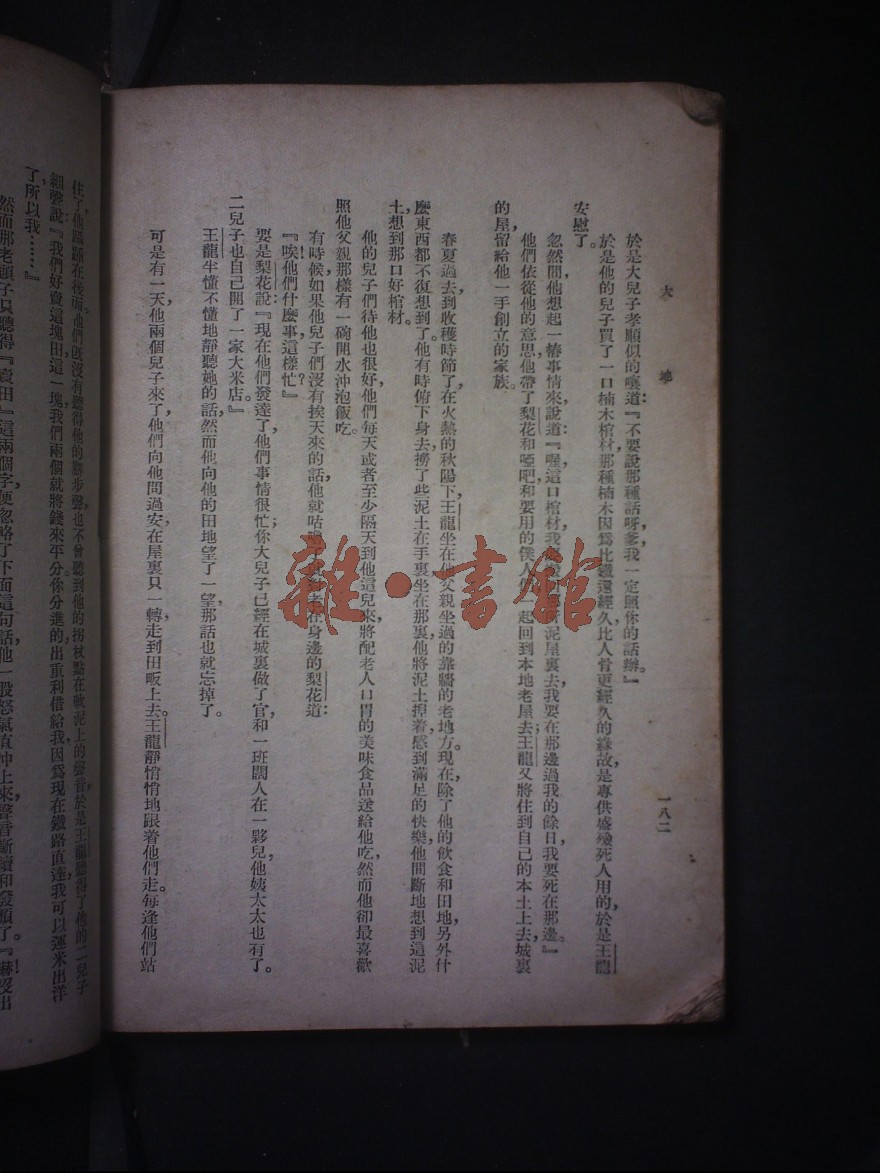 大地
一八二
於是大兒子孝順似的嚷道:『不要說那種話呀爹,我一定照你的話辦。』
於是他的兒子買了一口楠木棺材,那種楠木因爲比鐵還經久比人骨更經久的緣故,是專供盛殮死人用的,於是王龍
安慰了。
忽然間,他想起一樁事情來,說道:『喔,這口棺材,我要 泥屋裏去,我要在那邊過我的餘日,我要死在那邊。』
他們依從他的意思,他帶了梨花和啞吧,和要用的僕人們, 起回到本地老屋去;王龍又將住到自己的本土上去,城裏
的屋,留給他一手創立的家族。
春夏過去,到收穫時節了,在火熱的秋陽下,王龍坐在他父親坐過的靠牆的老地方。現在,除了他的飲食和田地,另外什
麽東西都不復想到了。他有時俯下身去撈了些泥土在手裏,坐在那裏,他將泥土捏着,感到滿足的快樂,他間斷地想到這泥
土,想到那口好棺材。
他的兒子們待他也很好,他們每天或者至少隔天到他這兒來,將配老人口胃的美味食品送給他吃,然而他卻最喜歡
照他父親那樣有一碗開水沖泡飯吃。
有時候,如果他兒子們沒有挨天來的話,他就咕 在身邊的梨花道:
『唉!他們什麽事這樣忙?』
要是梨花說:『現在他們發達了,他們事情很忙;你大兒子已經在城裏做了官,和一班闊人在一夥兒,他姨太太也有了。
二兒子也自己開了一家大米店。』
王龍半懂不懂地靜聽她的話,然而他向他的田地望了一望,那話也就忘掉了。
可是有一天,他兩個兒子來了,他們向他問過安,在屋裏只一轉,走到田畈上去。王龍靜悄悄地跟着他們走。每逢他們站
住了,他 在後面,他們旣沒有聽得他的脚步聲,也不曾聽到他的拐杖點在軟泥上的聲音,於是王龍聽得了他的二兒子
細聲說:『我們好賣這塊田,這一塊,我們兩個就將錢來平分。你分進的出重利借給我,因爲現在鐵路直達,我可以運米出洋
了,所以我……』
然而那老頭子只聽得『賣田』這兩個字,便忽略了下面這句話,他一股怒氣直沖上來,聲音斷續和發顫了。
雜·書館